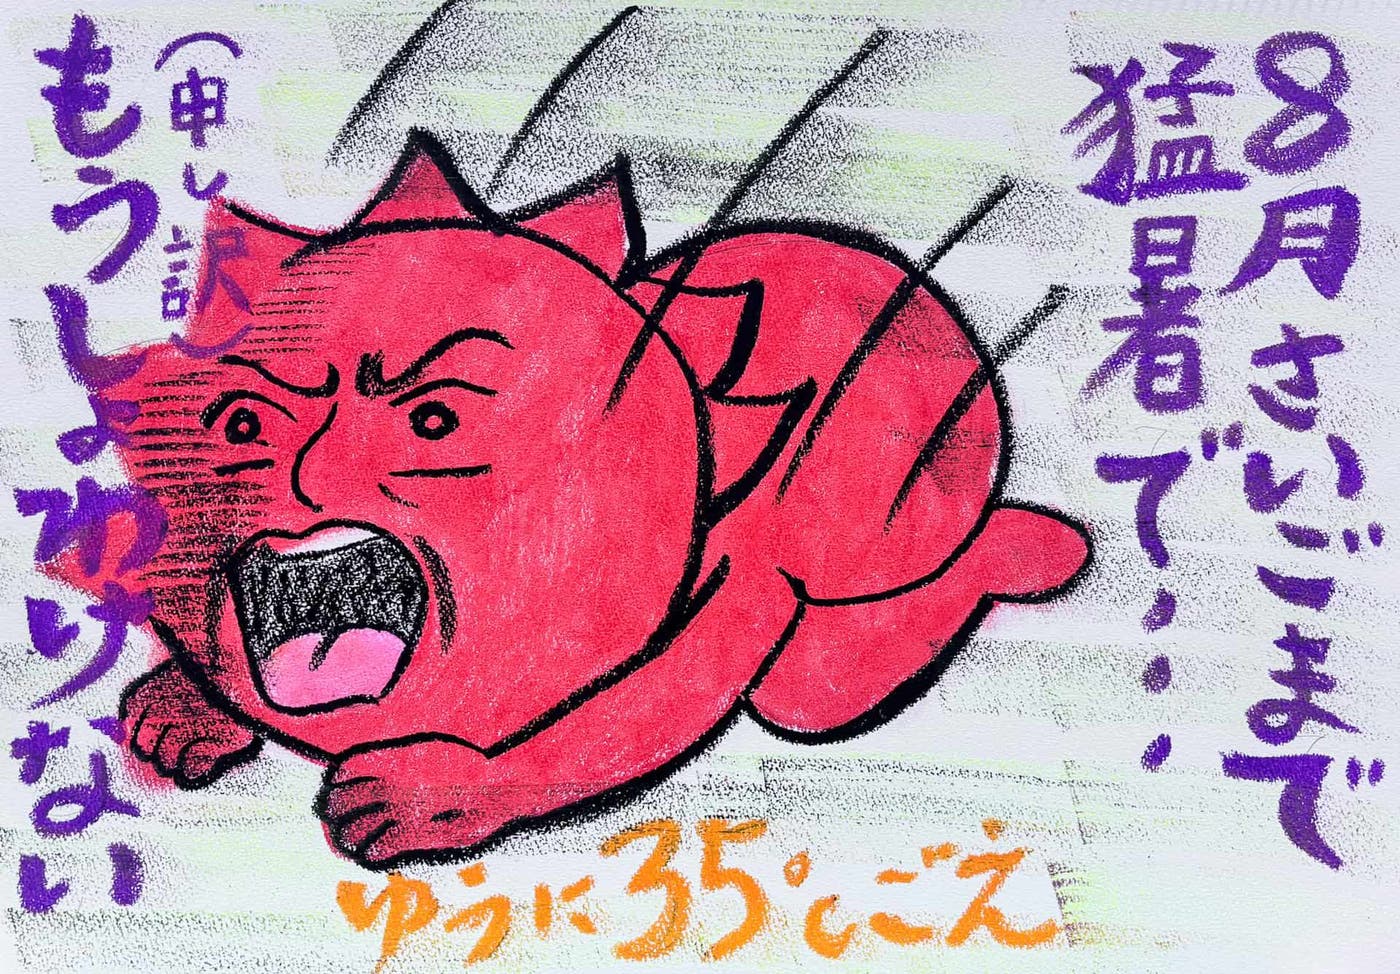 8月さいごまで
猛暑で・・・
(申し訳)
もうしょわけない
ゆうに35℃ごえ